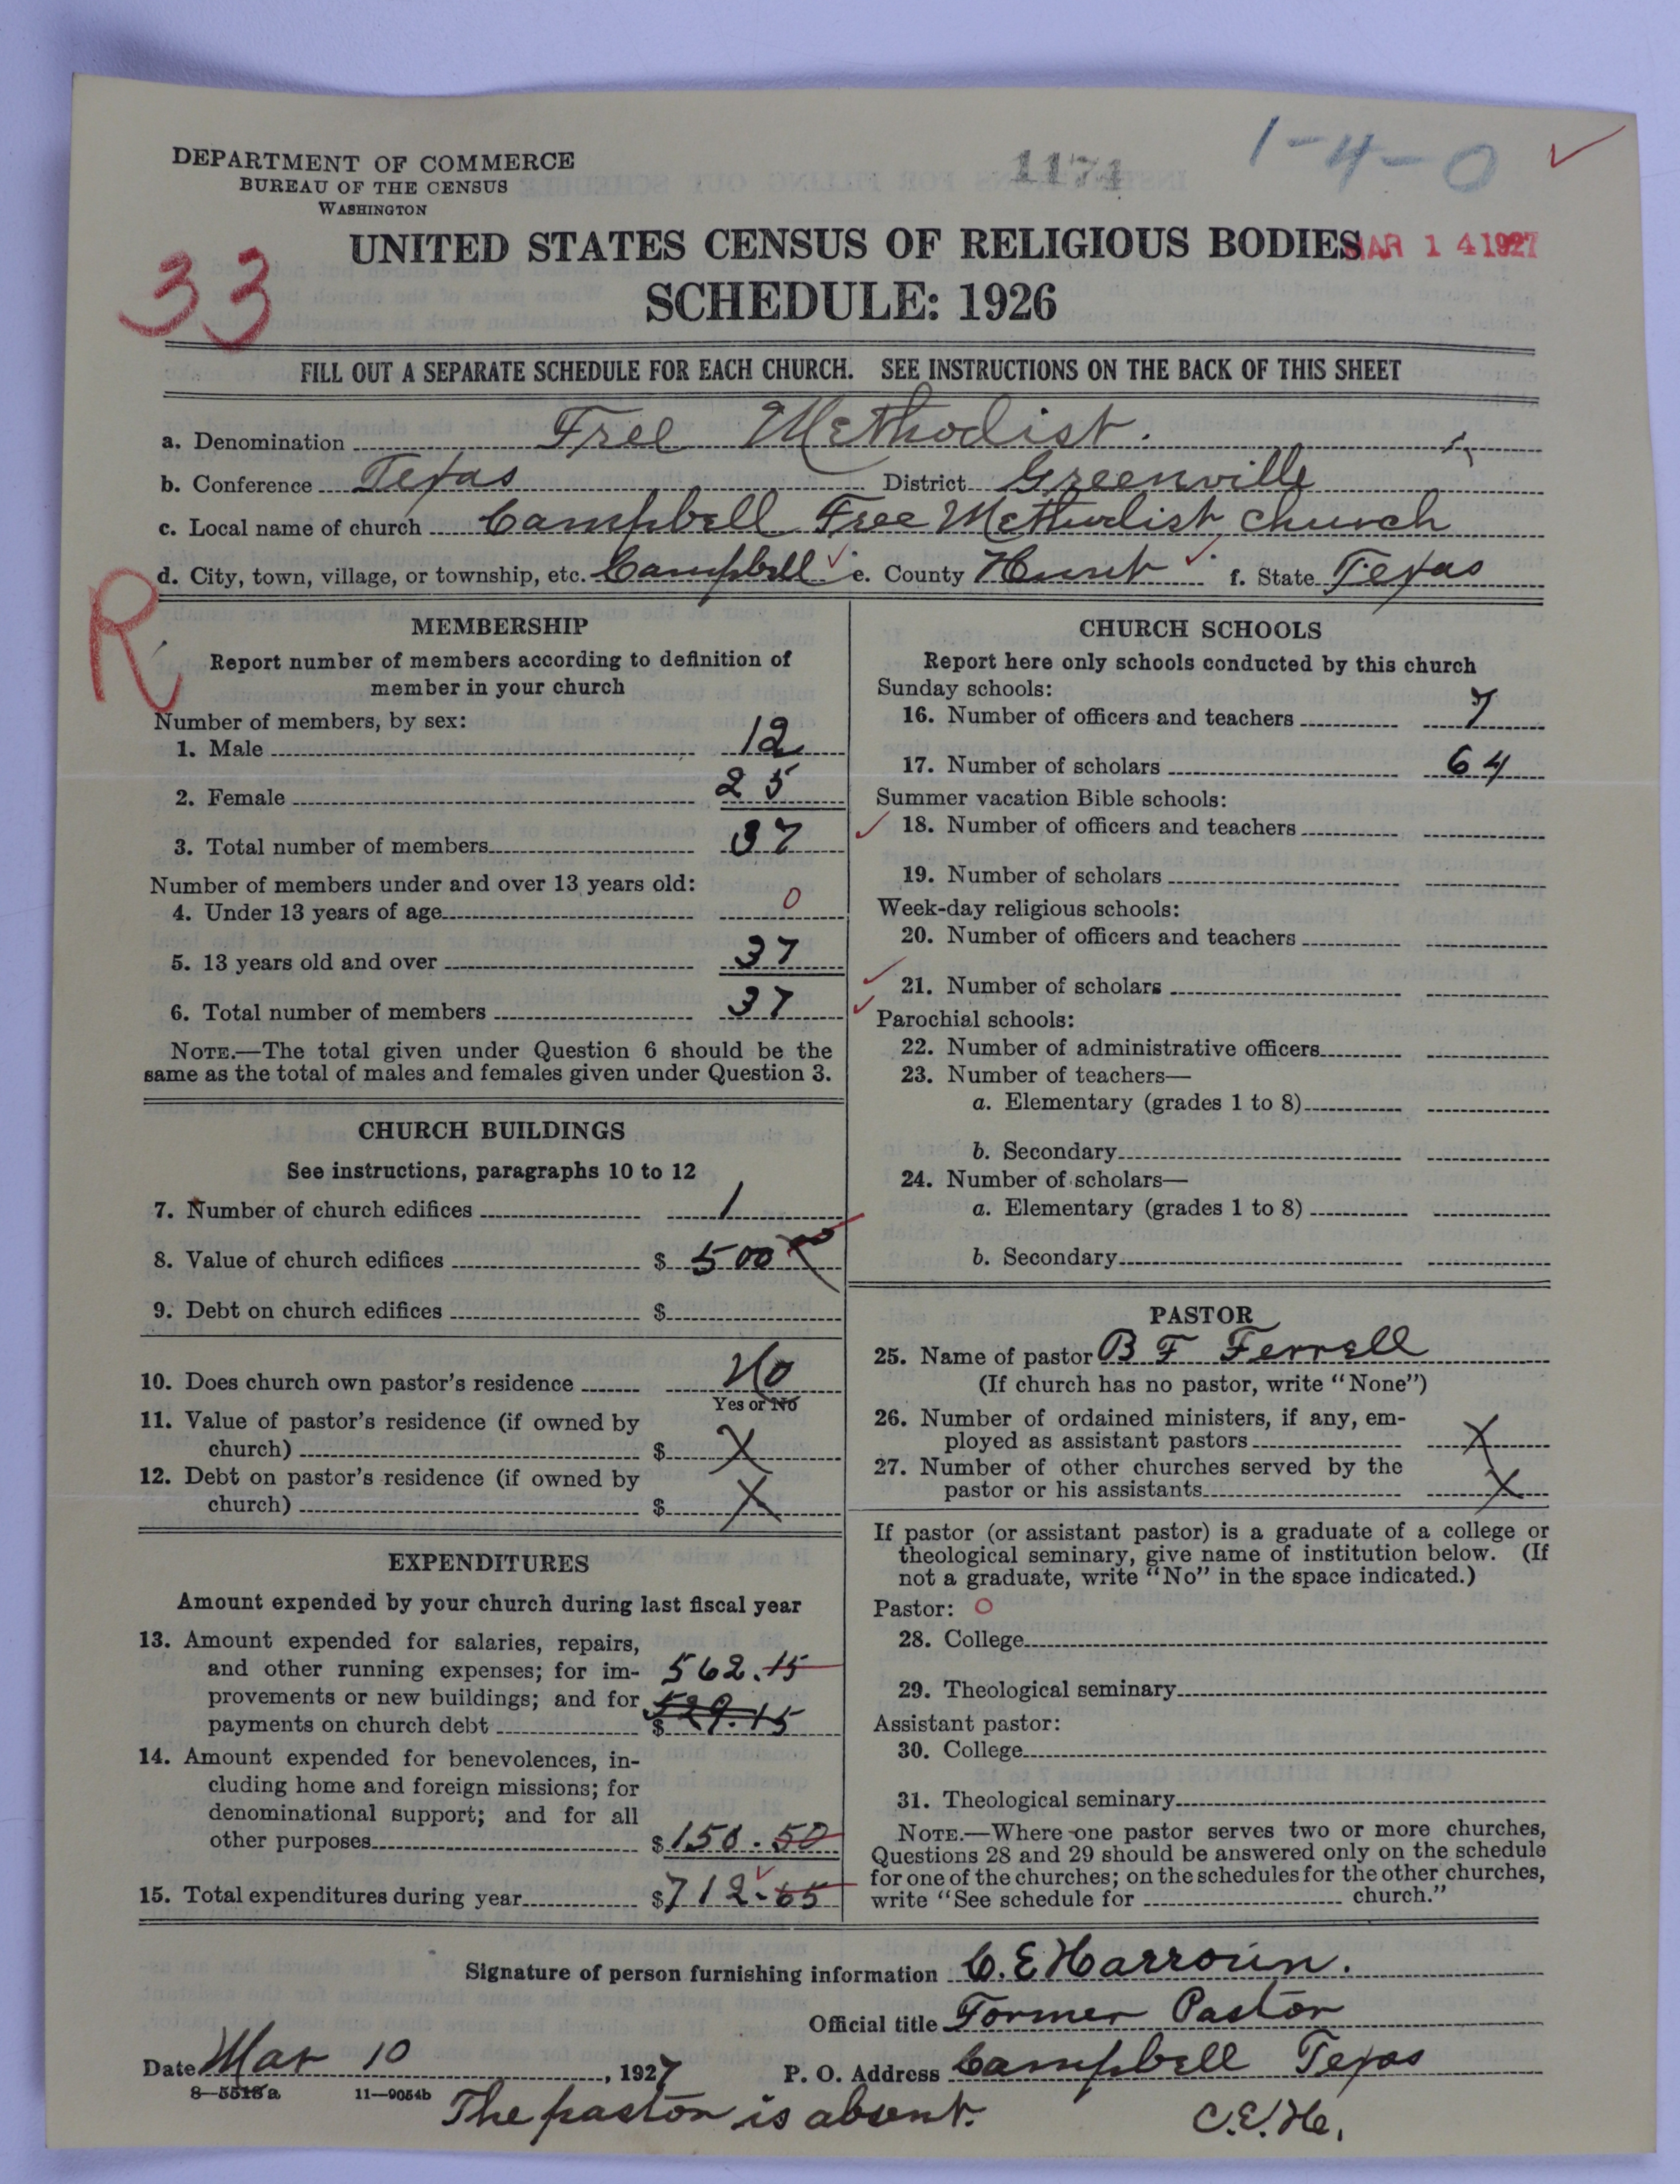 1-4-0
DEPARTMENT OF COMMERCE
BUREAU OF THE CENSUS
WASHINGTON
1174
33
UNITED STATES CENSUS OF RELIGIOUS BODIES
MAR 14 1927
SCHEDULE: 1926
FILL OUT A SEPARATE SCHEDULE FOR EACH CHURCH. SEE INSTRUCTIONS ON THE BACK OF THIS SHEET
a. Denomination Free Methodist.
b. Conference Texas District Greenville
c. Local name of church Campbell Free Methodist church
d. City, town, village, or township, etc. Campbell e. County Hunt f. State Texas
R
MEMBERSHIP
Report number of members according to definition of
member in your church
Number of members, by sex:
1. Male 12
2. Female 25
3. Total number of members 37
Number of members under and over 13 years old:
4. Under 13 years of age 0
5. 13 years old and over 37
6. Total number of members 37
NOTE.—The total given under Question 6 should be the
same as the total of males and females given under Question 3.
CHURCH BUILDINGS
See instructions, paragraphs 10 to 12
7. Number of church edifices 1
8. Value of church edifices $ 500
9. Debt on church edifices $
10. Does church own pastor's residence No
Yes or No
11. Value of pastor's residence (if owned by
church) $ X
12. Debt on pastor's residence (if owned by
church) $ X
EXPENDITURES
Amount expended by your church during last fiscal year
13. Amount expended for salaries, repairs,
and other running expenses; for im- 562.15
provements or new buildings; and for
payments on church debt $ 529.15
14. Amount expended for benevolences, in-
cluding home and foreign missions; for
denominational support; and for all
other purposes $ 150.50
15. Total expenditures during year $ 712.65
CHURCH SCHOOLS
Report here only schools conducted by this church
Sunday schools:
16. Number of officers and teachers 7
17. Number of scholars 64
Summer vacation Bible schools:
18. Number of officers and teachers
19. Number of scholars
Week-day religious schools:
20. Number of officers and teachers
21. Number of scholars
Parochial schools:
22. Number of administrative officers
23. Number of teachers—
a. Elementary (grades 1 to 8)
b. Secondary
24. Number of scholars—
a. Elementary (grades 1 to 8)
b. Secondary
PASTOR
25. Name of pastor B F Ferrell
(If church has no pastor, write "None")
26. Number of ordained ministers, if any, em-
ployed as assistant pastors X
27. Number of other churches served by the
pastor or his assistants X
If pastor (or assistant pastor) is a graduate of a college or
theological seminary, give name of institution below. (If
not a graduate, write "No" in the space indicated.)
Pastor: O
28. College
29. Theological seminary
Assistant pastor:
30. College
31. Theological seminary
NOTE.—Where one pastor serves two or more churches,
Questions 28 and 29 should be answered only on the schedule
for one of the churches; on the schedules for the other churches,
write "See schedule for church."
Signature of person furnishing information C. E Harroun.
Official title Former Pastor
Date Mar 10, 1927 P. O. Address Campbell Texas
8—5515a 11—9054b
The pastor is absent. C.E.H.